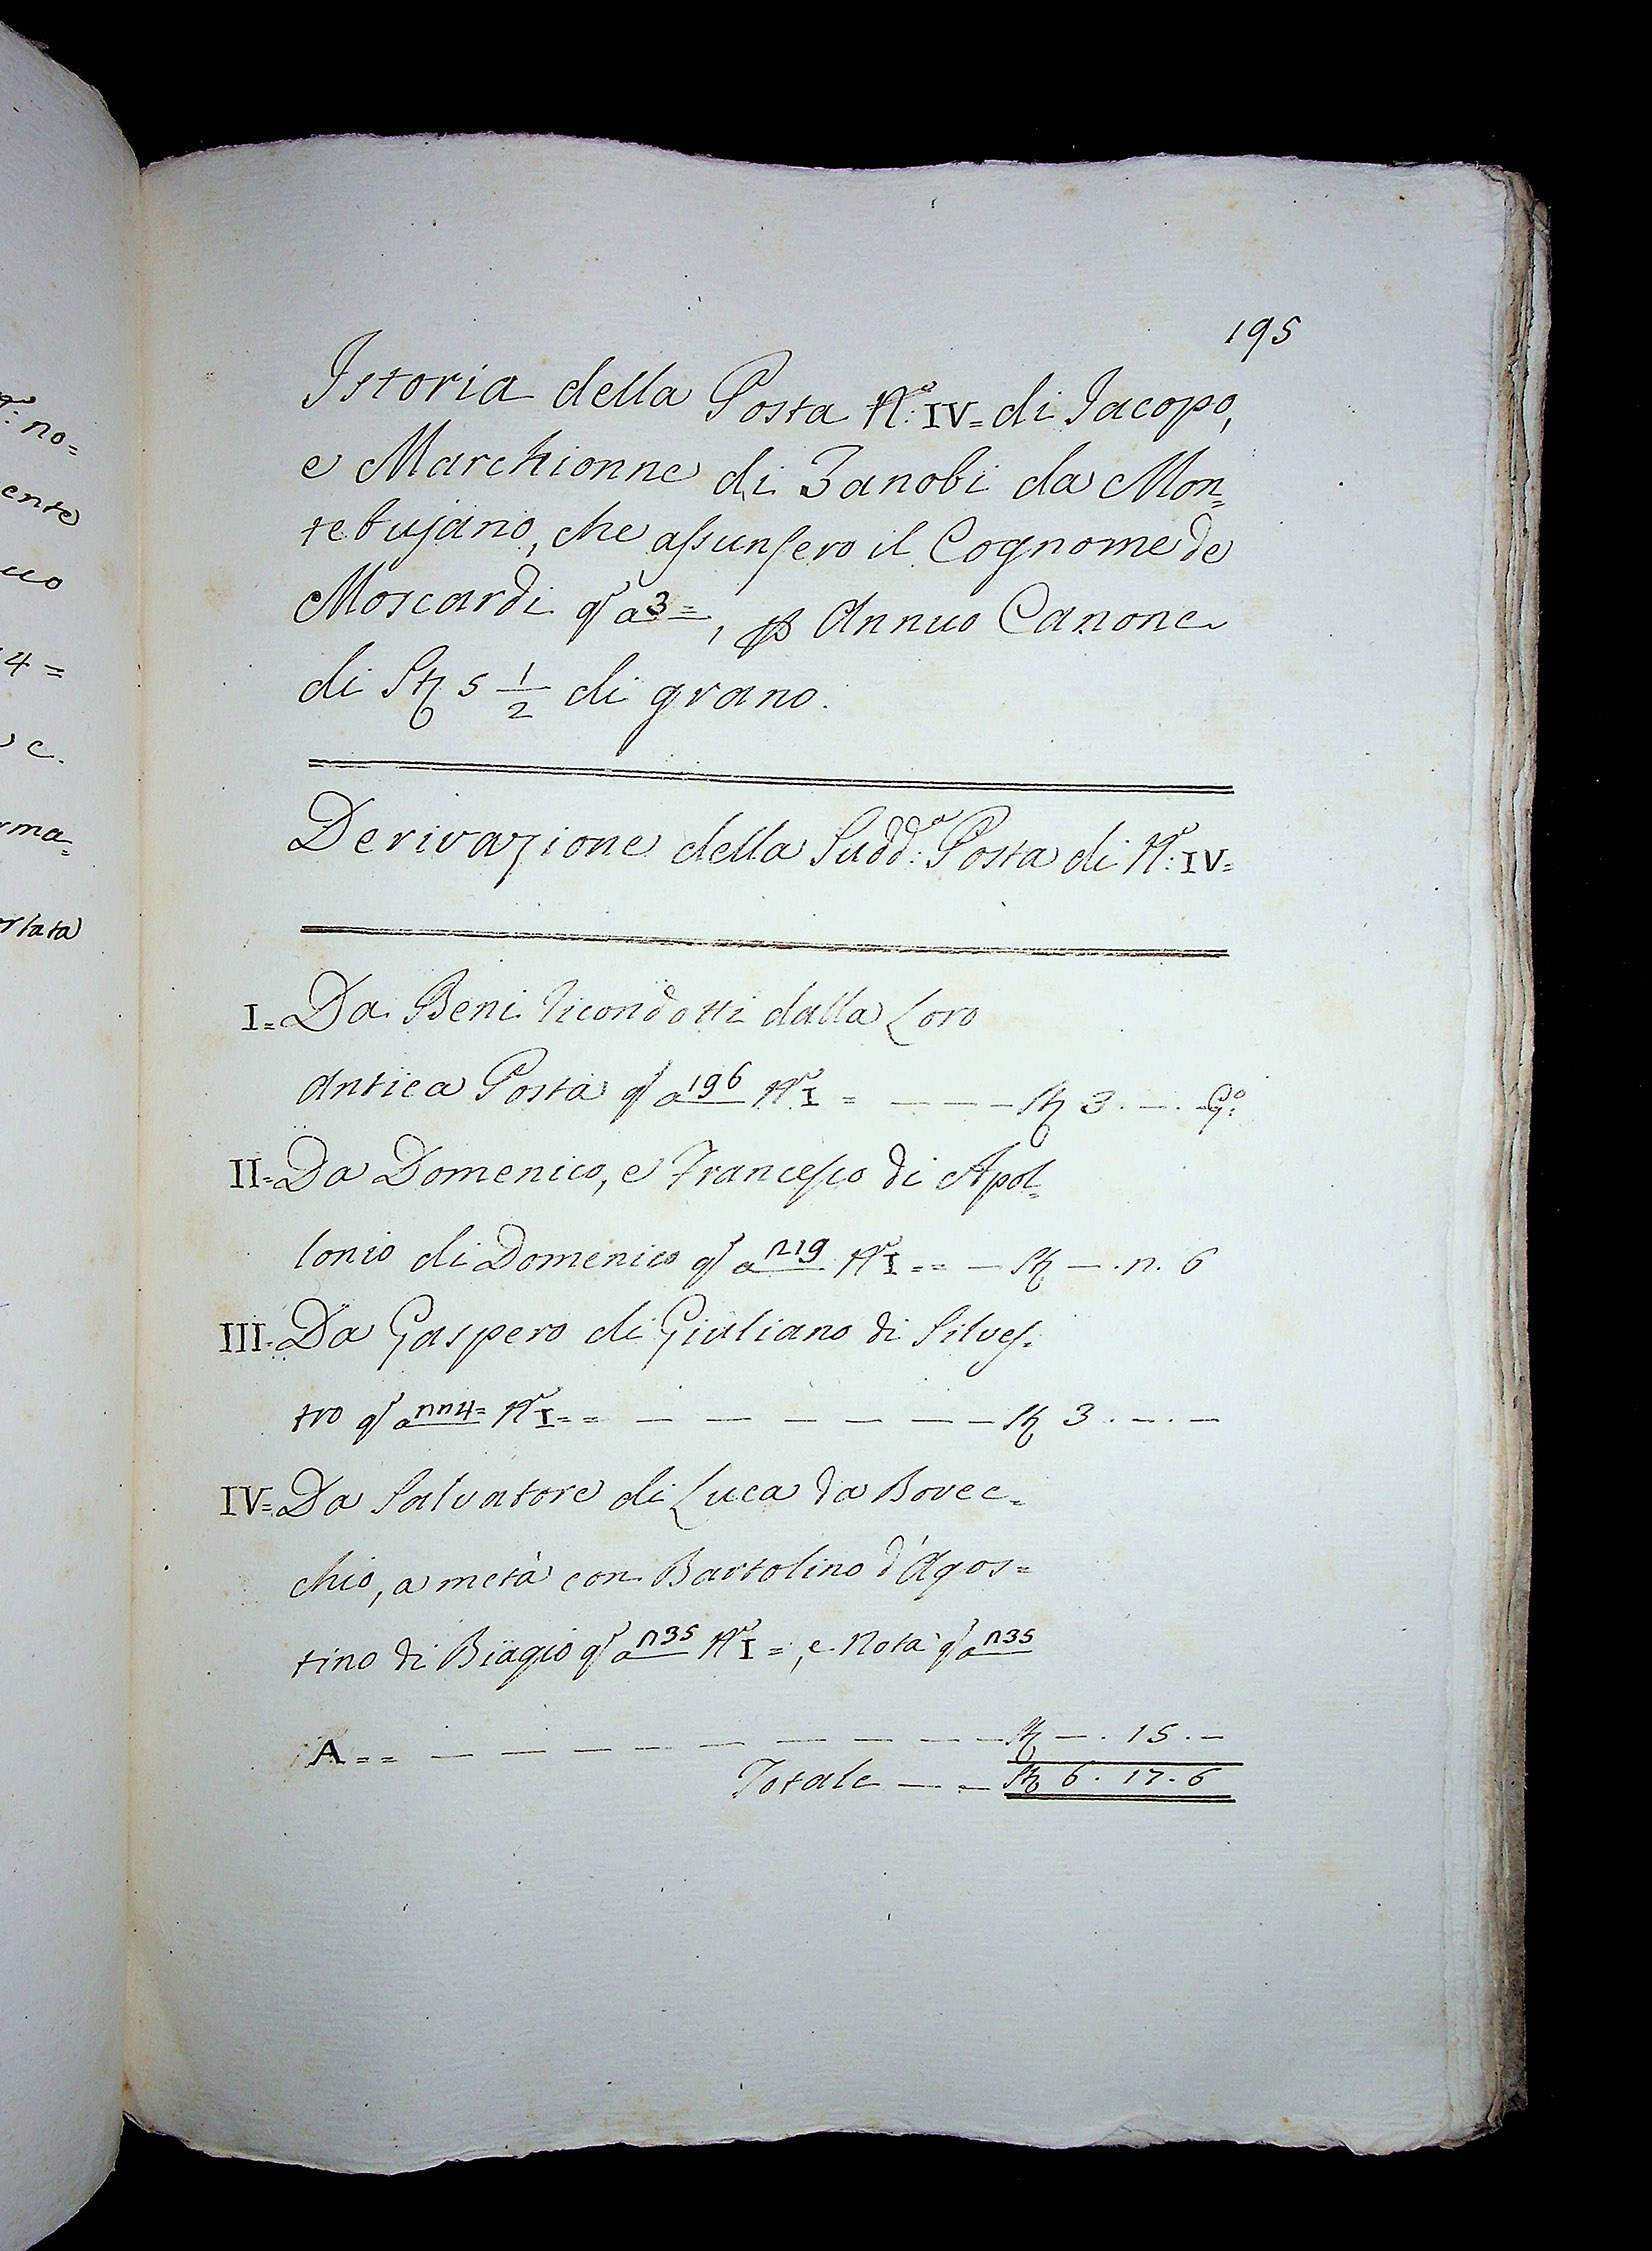 q.º no=
ente
uo
4=
e.
rma=
rtata
195
Istoria della Posta Nº: IV= di Iacopo,
e Marchionne di Zanobi da Mon=
tebujano, che assunsero il Cognome de
Moscardi qº a 3=, p Annuo Canone
di St 5 1/2 di grano.
Derivazione della Sudd:ª Posta di Nº: IV=
I= Da Beni Ricondotti dalla Loro
Antica Posta qº a 196 Nº I = — — — St 3. —. — Gº:
II= Da Domenico, e Francesco di Apol=
lonio di Domenico qº a n19 Nº I == — St —. n. 6
III= Da Gaspero di Giuliano di Silves=
tro qº a nn4= Nº I== — — — — — — St 3. —. —
IV= Da Salvatore di Luca da Bovec=
chio, a metà con Bartolino d'Agos=
tino di Biagio qº a n35 Nº I =, e Nota qº a n35
A== — — — — — — — — St —. 15. —
Totale — — St 6. 17. 6